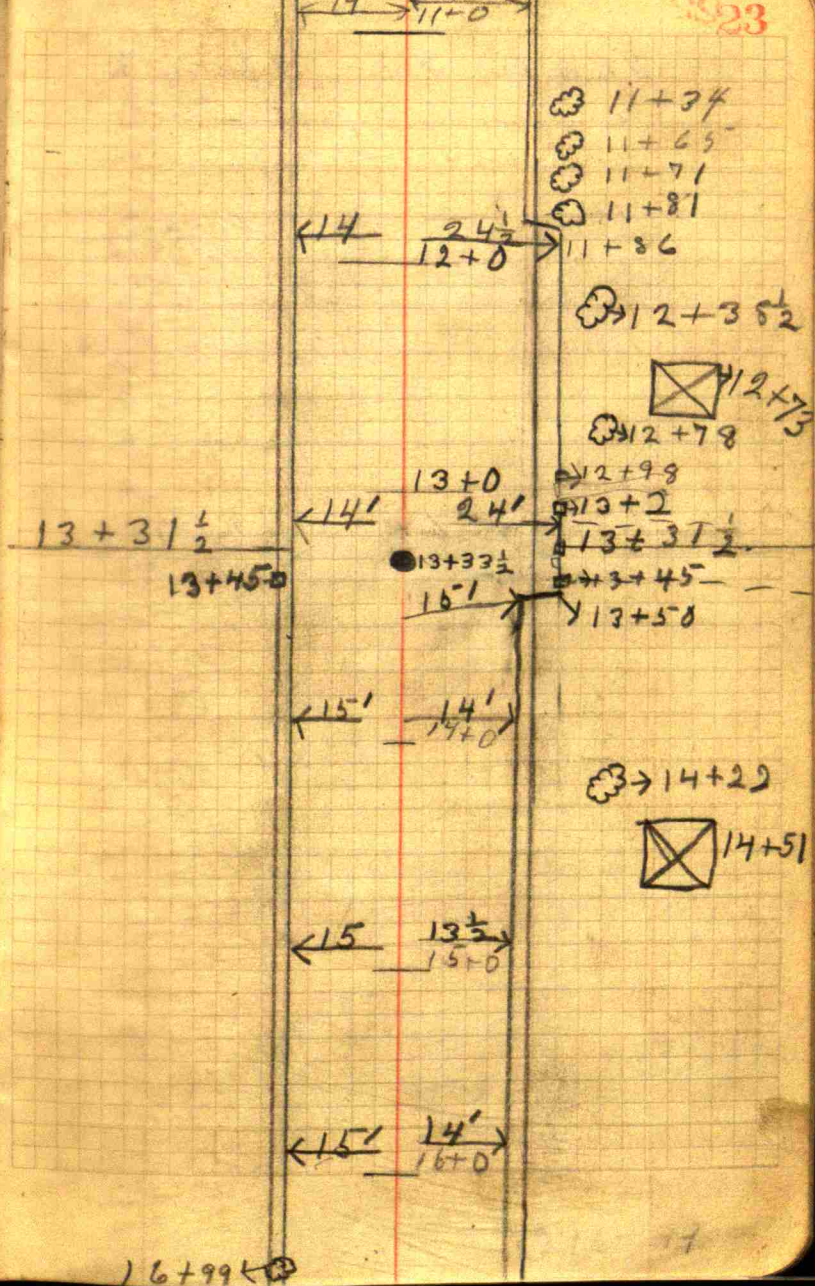 23
14
11+0
11+34
11+65
11+71
11+81
14 24½
12+0 11+86
12+35½
12+73
12+78
13+0 12+98
14' 24' 13+2
13+31½ 13+31½
13+33½
13+45 13+45
15' 13+50
15' 14'
14+0
14+22
14+51
15 13½
15+0
15' 14'
16+0
16+99